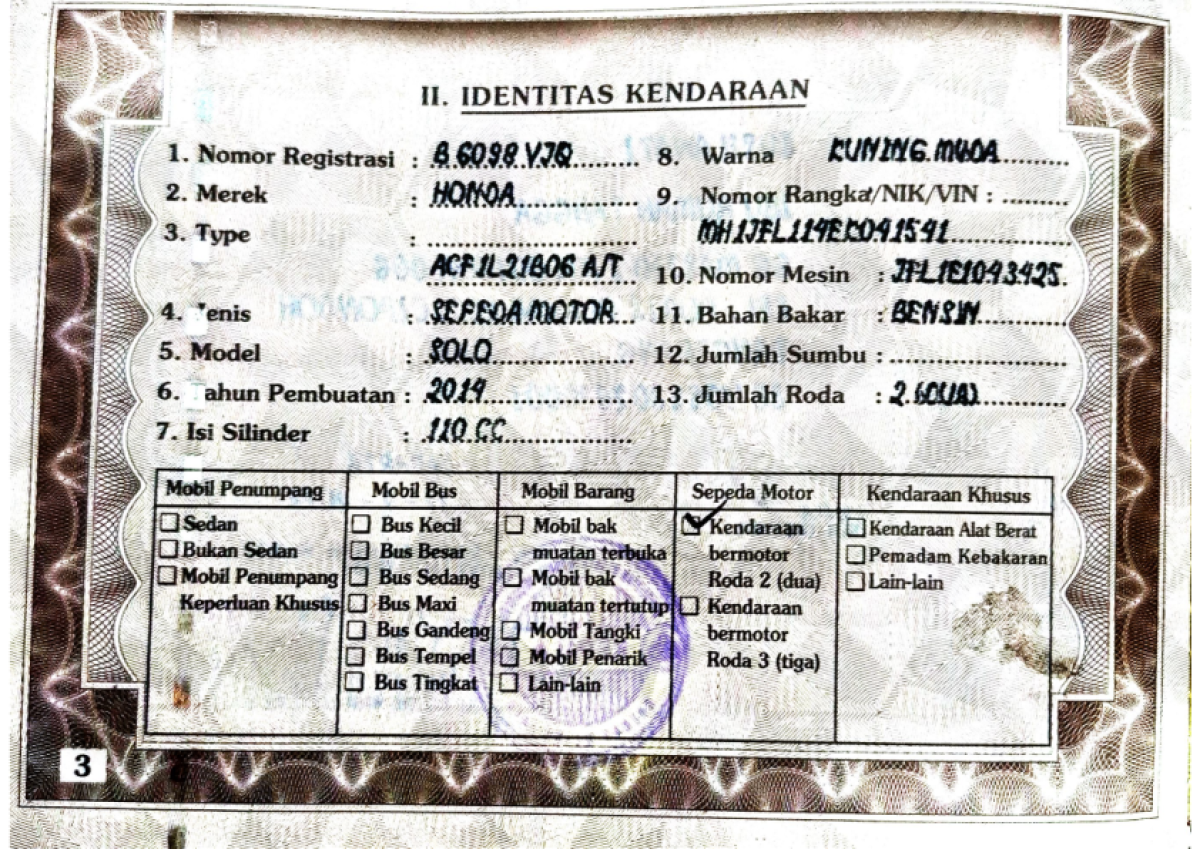 II. IDENTITAS KENDARAAN
1. Nomor Registrasi : B 6098 VJQ
2. Merek : HONDA
3. Type :
ACF1L21B06 A/T
4. Jenis : SEPEDA MOTOR
5. Model : SOLO
6. Tahun Pembuatan : 2014
7. Isi Silinder : 110 CC
8. Warna KUNING MUDA
9. Nomor Rangka/NIK/VIN :
MH1JFL114EK041541
10. Nomor Mesin : JFL1E1043425
11. Bahan Bakar : BENSIN
12. Jumlah Sumbu :
13. Jumlah Roda : 2 (DUA)
Mobil Penumpang
Sedan
Bukan Sedan
Mobil Penumpang
Keperluan Khusus
Mobil Bus
Bus Kecil
Bus Besar
Bus Sedang
Bus Maxi
Bus Gandeng
Bus Tempel
Bus Tingkat
Mobil Barang
Mobil bak
muatan terbuka
Mobil bak
muatan tertutup
Mobil Tangki
Mobil Penarik
Lain-lain
Sepeda Motor
Kendaraan
bermotor
Roda 2 (dua)
Kendaraan
bermotor
Roda 3 (tiga)
Kendaraan Khusus
Kendaraan Alat Berat
Pemadam Kebakaran
Lain-lain
3